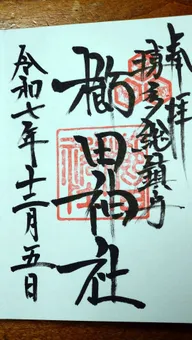 奉拝
博多総鎮守
櫛田神社
令和七年十二月五日